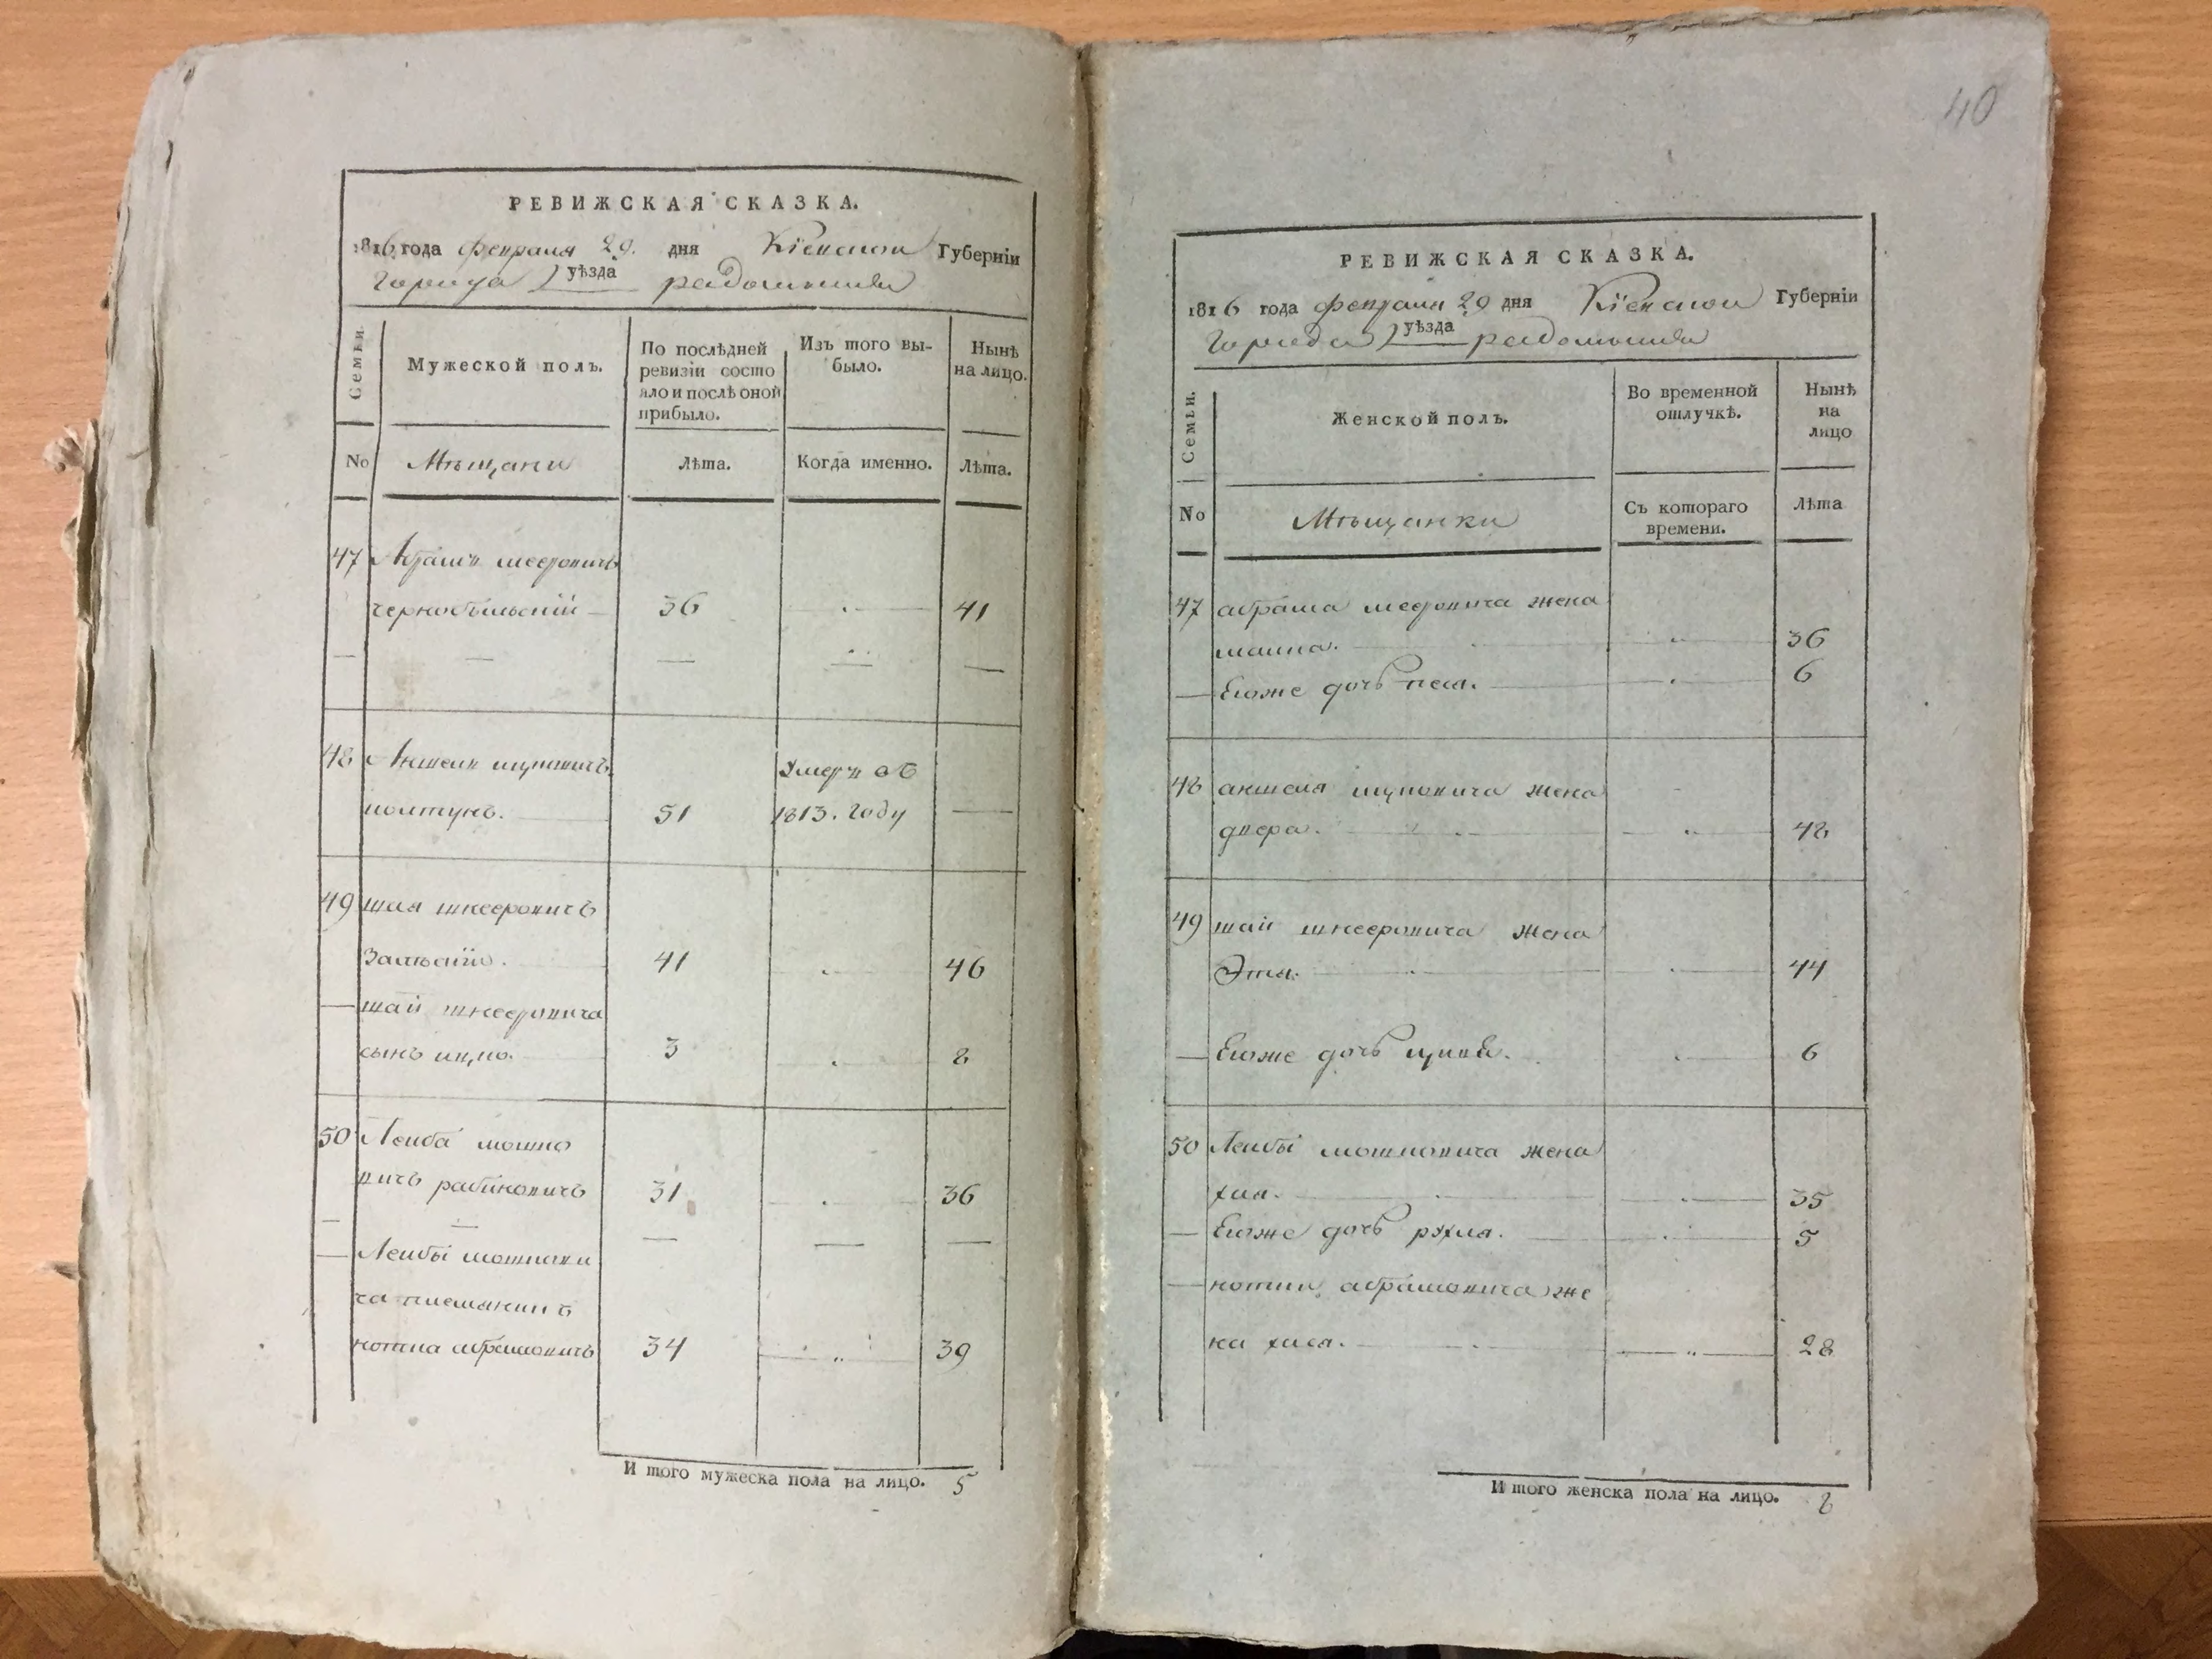 РЕВИЖСКАЯ СКАЗКА.
1816 года февраля 29. дня Кіевской Губерніи
города уѣзда радомышля
Семьи.
Мужеской полъ.
По послѣдней
ревизіи состо
яло и послѣ оной
прибыло.
Изъ того вы-
было.
Нынѣ
на лицо.
No Мѣщани Лѣта. Когда именно. Лѣта.
47 Абрамъ мееровичъ
чернобыльскій 36 41
48 Аншель ицковичъ Умеръ въ
51 1813. году
49 шая шнееровичъ
Залѣскій. 41 46
шаи шнееровича
сынъ ицко. 3 8
50 Лейба мошко
вичъ рабиновичъ 31 36
Лейбы мошкови
ча племянникъ
мотка абрамовичъ 34 39
И того мужеска пола на лицо. 5
40
РЕВИЖСКАЯ СКАЗКА.
1816 года февраля 29 дня Кіевской Губерніи
города уѣзда радомышля
Семьи.
Женской полъ.
Во временной
отлучкѣ.
Нынѣ
на
лицо
No Мѣщанки
Съ котораго
времени.
Лѣта
47 абрама меровича жена
малка. 36
Егоже дочь песя. 6
48 аншеля ицковича жена
двера. 48
49 шаи шнееровича жена
Этя. 44
Егоже дочь цивя. 6
50 Лейбы мошковича жена
хая. 35
Егоже дочь рухля. 5
мотки абрамовича же
на хася. 28
И того женска пола на лицо. 8